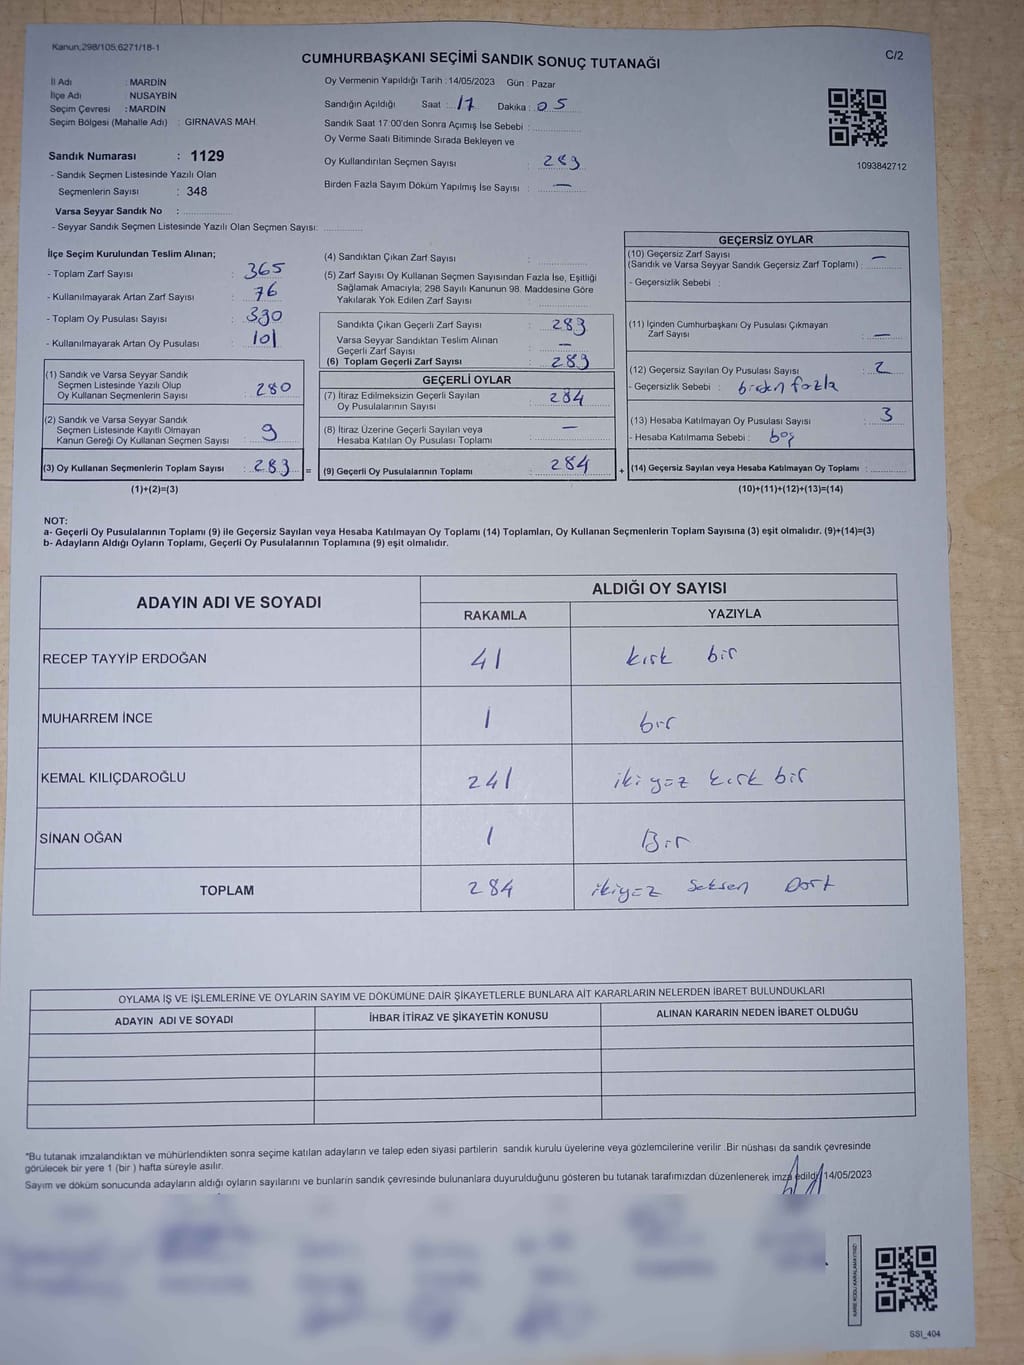 Kanun,298/105,6271/18-1
CUMHURBAŞKANI SEÇİMİ SANDIK SONUÇ TUTANAĞI
C/2
İl Adı : MARDİN
İlçe Adı : NUSAYBİN
Seçim Çevresi : MARDİN
Seçim Bölgesi (Mahalle Adı) : GIRNAVAS MAH.
Sandık Numarası : 1129
- Sandık Seçmen Listesinde Yazılı Olan
Seçmenlerin Sayısı : 348
Varsa Seyyar Sandık No :
- Seyyar Sandık Seçmen Listesinde Yazılı Olan Seçmen Sayısı:
Oy Vermenin Yapıldığı Tarih : 14/05/2023 Gün : Pazar
Sandığın Açıldığı Saat : 17 Dakika : 05
Sandık Saat 17:00'den Sonra Açımış İse Sebebi :
Oy Verme Saati Bitiminde Sırada Bekleyen ve
Oy Kullandırılan Seçmen Sayısı : 283
Birden Fazla Sayım Döküm Yapılmış İse Sayısı : —
1093842712
İlçe Seçim Kurulundan Teslim Alınan;
- Toplam Zarf Sayısı : 365
- Kullanılmayarak Artan Zarf Sayısı : 76
- Toplam Oy Pusulası Sayısı : 330
- Kullanılmayarak Artan Oy Pusulası : 101
(1) Sandık ve Varsa Seyyar Sandık
Seçmen Listesinde Yazılı Olup
Oy Kullanan Seçmenlerin Sayısı : 280
(2) Sandık ve Varsa Seyyar Sandık
Seçmen Listesinde Kayıtlı Olmayan
Kanun Gereği Oy Kullanan Seçmen Sayısı : 9
(3) Oy Kullanan Seçmenlerin Toplam Sayısı : 283 =
(1)+(2)=(3)
(4) Sandıktan Çıkan Zarf Sayısı :
(5) Zarf Sayısı Oy Kullanan Seçmen Sayısından Fazla İse, Eşitliği
Sağlamak Amacıyla; 298 Sayılı Kanunun 98. Maddesine Göre
Yakılarak Yok Edilen Zarf Sayısı :
Sandıkta Çıkan Geçerli Zarf Sayısı : 283
Varsa Seyyar Sandıktan Teslim Alınan
Geçerli Zarf Sayısı : —
(6) Toplam Geçerli Zarf Sayısı : 283
GEÇERLİ OYLAR
(7) İtiraz Edilmeksizin Geçerli Sayılan
Oy Pusulalarının Sayısı : 284
(8) İtiraz Üzerine Geçerli Sayılan veya
Hesaba Katılan Oy Pusulası Toplamı : —
(9) Geçerli Oy Pusulalarının Toplamı : 284 +
GEÇERSİZ OYLAR
(10) Geçersiz Zarf Sayısı
(Sandık ve Varsa Seyyar Sandık Geçersiz Zarf Toplamı) : —
- Geçersizlik Sebebi :
(11) İçinden Cumhurbaşkanı Oy Pusulası Çıkmayan
Zarf Sayısı : —
(12) Geçersiz Sayılan Oy Pusulası Sayısı : 2
- Geçersizlik Sebebi : birden fazla
(13) Hesaba Katılmayan Oy Pusulası Sayısı : 3
- Hesaba Katılmama Sebebi : boş
(14) Geçersiz Sayılan veya Hesaba Katılmayan Oy Toplamı :
(10)+(11)+(12)+(13)=(14)
NOT:
a- Geçerli Oy Pusulalarının Toplamı (9) ile Geçersiz Sayılan veya Hesaba Katılmayan Oy Toplamı (14) Toplamları, Oy Kullanan Seçmenlerin Toplam Sayısına (3) eşit olmalıdır. (9)+(14)=(3)
b- Adayların Aldığı Oyların Toplamı, Geçerli Oy Pusulalarının Toplamına (9) eşit olmalıdır.
ADAYIN ADI VE SOYADI
ALDIĞI OY SAYISI
RAKAMLA YAZIYLA
RECEP TAYYİP ERDOĞAN 41 kırk bir
MUHARREM İNCE 1 bir
KEMAL KILIÇDAROĞLU 241 ikiyüz kırk bir
SİNAN OĞAN 1 Bir
TOPLAM 284 ikiyüz Seksen Dört
OYLAMA İŞ VE İŞLEMLERİNE VE OYLARIN SAYIM VE DÖKÜMÜNE DAİR ŞİKAYETLERLE BUNLARA AİT KARARLARIN NELERDEN İBARET BULUNDUKLARI
ADAYIN ADI VE SOYADI İHBAR İTİRAZ VE ŞİKAYETİN KONUSU ALINAN KARARIN NEDEN İBARET OLDUĞU
*Bu tutanak imzalandıktan ve mühürlendikten sonra seçime katılan adayların ve talep eden siyasi partilerin sandık kurulu üyelerine veya gözlemcilerine verilir. Bir nüshası da sandık çevresinde
görülecek bir yere 1 (bir ) hafta süreyle asılır.
Sayım ve döküm sonucunda adayların aldığı oyların sayılarını ve bunların sandık çevresinde bulunanlara duyurulduğunu gösteren bu tutanak tarafımızdan düzenlenerek imza edildi. 14/05/2023
KARE KODU KARALAMAYINIZ!
SSI_404